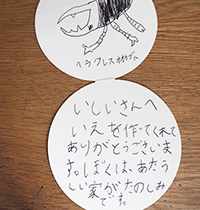 ヘラクレスオオカブト
いしいさんへ
いえを作ってくれて
ありがとうございま
す。ぼくは、あたら
しい家がたのしみ
です。